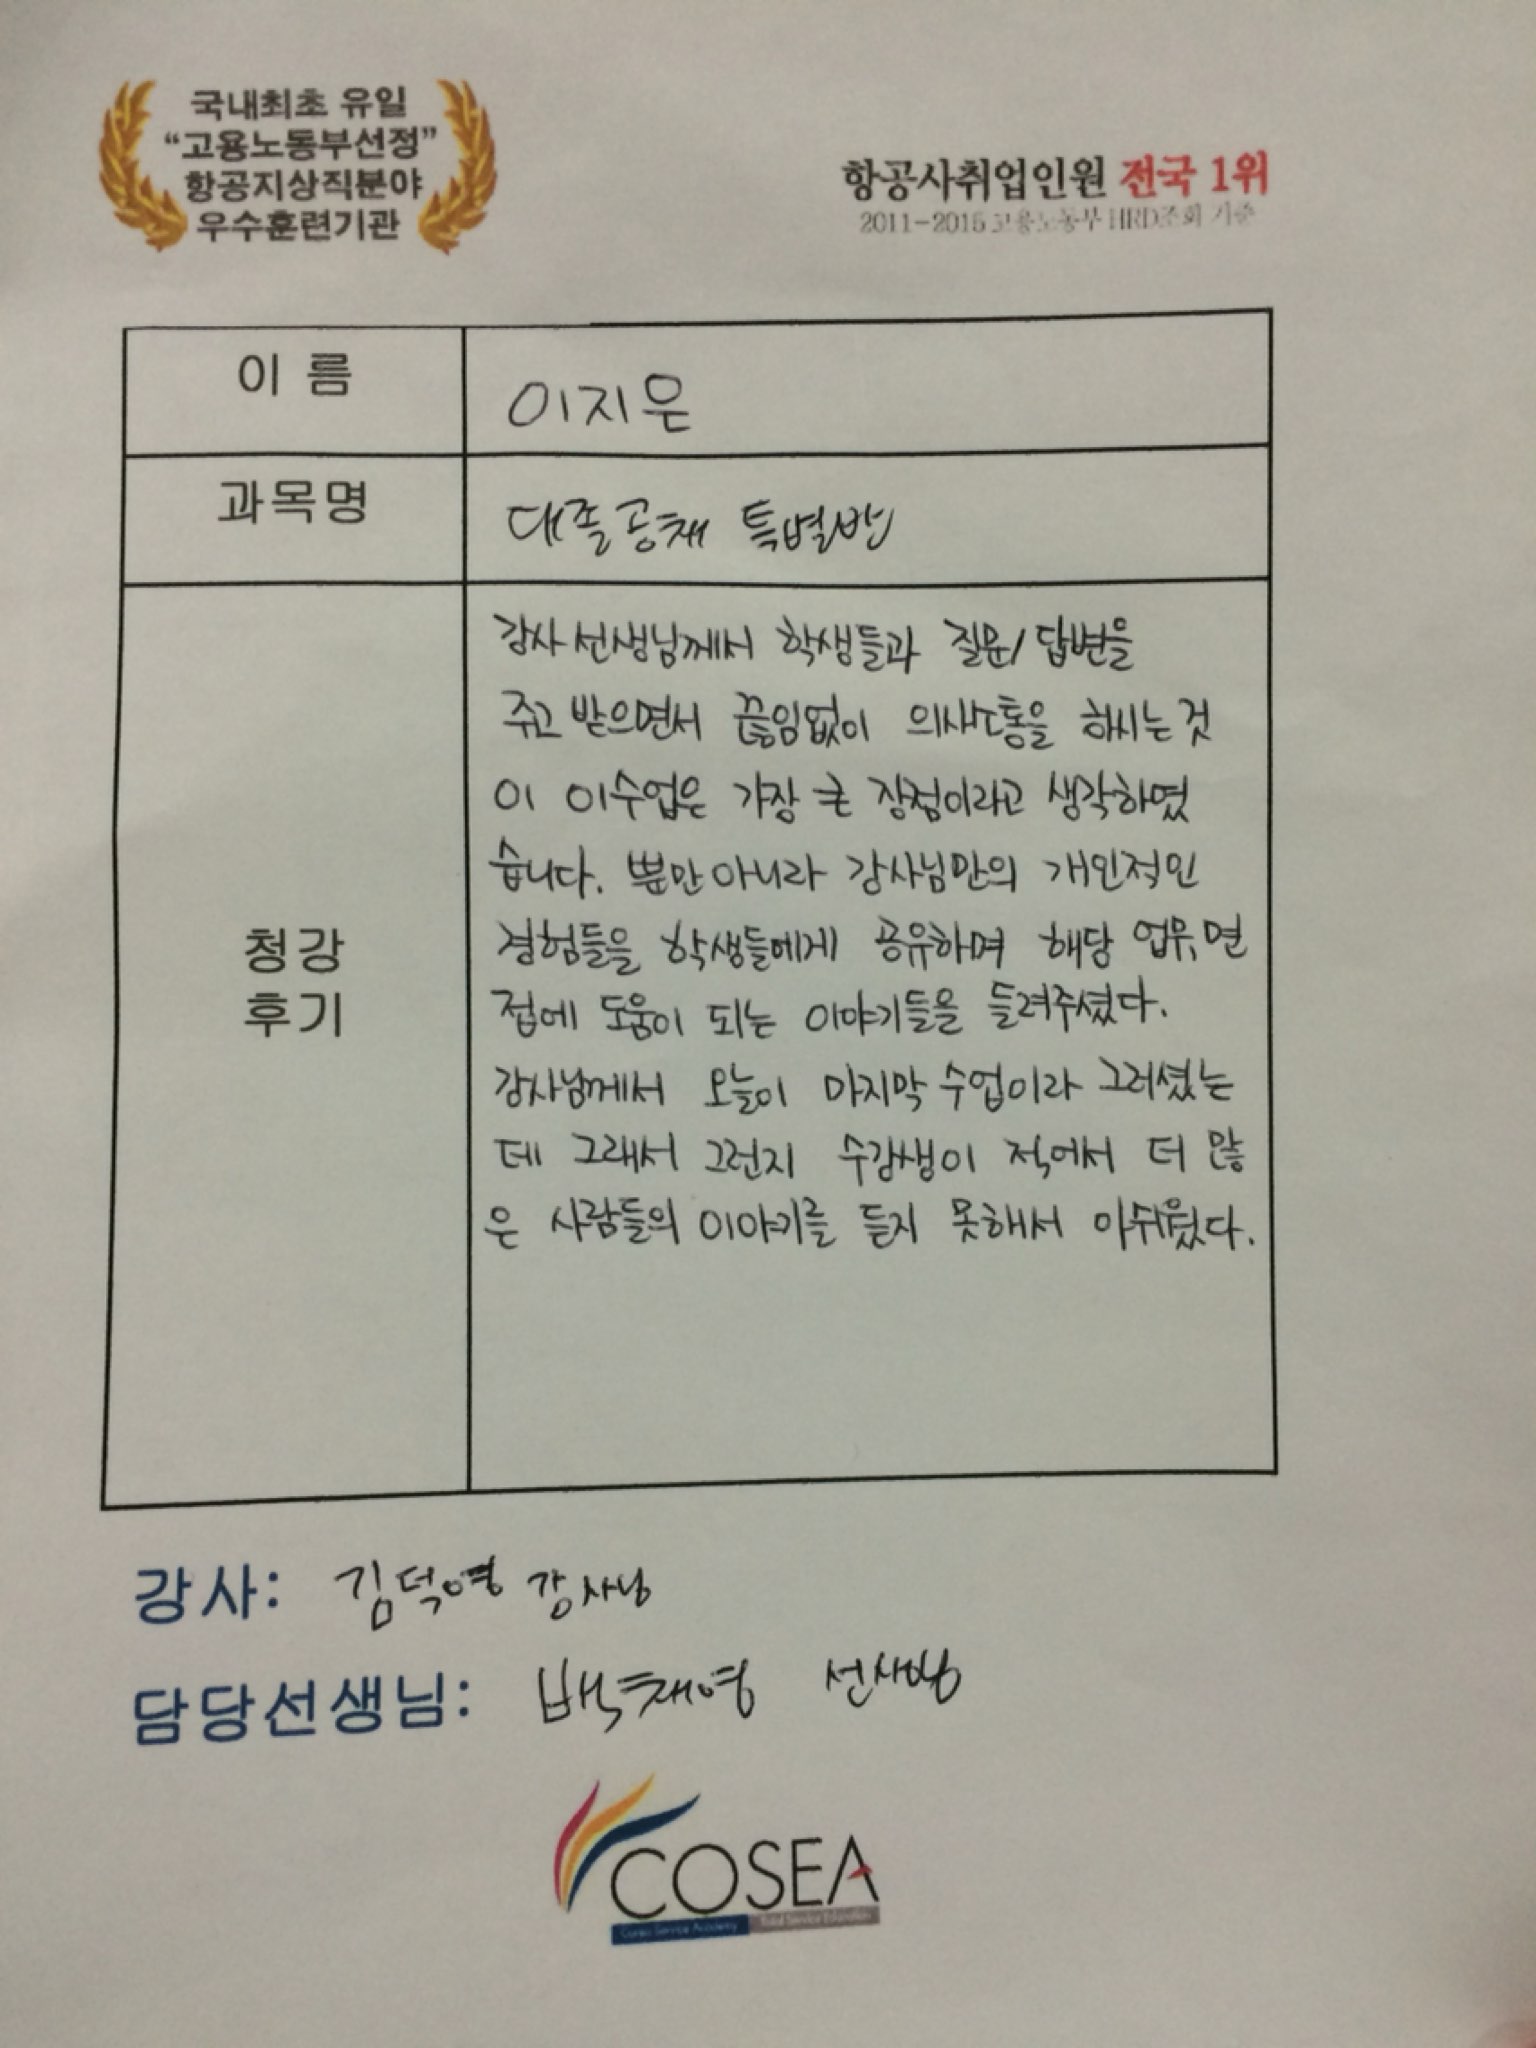 국내최초 유일
“고용노동부선정”
항공지상직분야
우수훈련기관
항공사취업인원 전국 1위
2011-2015 고용노동부 HRD조회 기준
이 름
이지은
과목명
대졸공채 특별반
청강
후기
강사 선생님께서 학생들과 질문/답변을
주고 받으면서 끊임없이 의사소통을 하시는 것
이 이수업은 가장 큰 장점이라고 생각하였
습니다. 뿐만 아니라 강사님만의 개인적인
경험들을 학생들에게 공유하며 해당 업무, 면
접에 도움이 되는 이야기들을 들려주셨다.
강사님께서 오늘이 마지막 수업이라 그러셨는
데 그래서 그런지 수강생이 적어서 더 많
은 사람들의 이야기를 듣지 못해서 아쉬웠다.
강사: 김덕영 강사님
담당선생님: 백채영 선생님
COSEA
Corea Service Academy Total Service Education